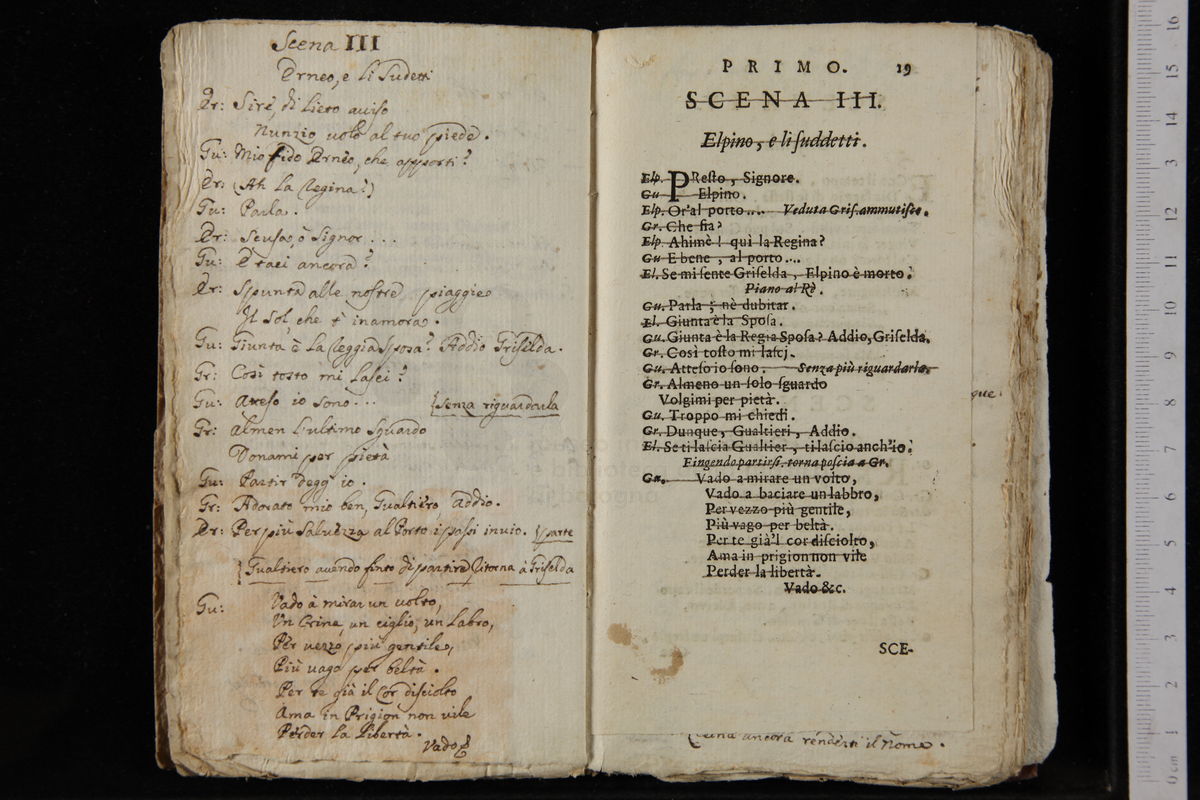 Scena III
Erneo, e li Sudetti
Er: Sire, di lieto auiso
Nunzio volo al tuo piede.
Gu: Mio fido Erneo, che apporti?
Er: (Ah la Regina!)
Gu: Parla.
Er: Scusa, ò Signor...
Gu: E taci ancora?
Er: Spunta alle nostre piaggie
Il Sol, che t' inamora.
Gu: Giunta è la Reggia Sposa? Addio Griselda.
Gr: Così tosto mi lasci?
Gu: Atteso io sono... {senza riguardarla
Gr: Almen l'ultimo sguardo
Donami per pietà
Gu: Partir degg' io.
Gr: Adorato mio ben, Gualtiero, addio.
Er: Per più saluezza al Porto i passi inuio. }parte
{Gualtiero auendo finto di partire ritorna à Griselda
Gu: Vado à mirar un volto,
Un Crine, un ciglio, un Labro,
Per vezzo più gentile,
Più vago per beltà.
Per te già il Cor disciolto
Ama in Prigion non vile
Perder la Libertà.
Vado &
PRIMO. 19
SCENA III.
Elpino, e li suddetti.
Elp. PResto, Signore.
Gu Elpino.
Elp. Or'al porto.... Veduta Gris. ammutisce.
Gr. Che fia?
Elp. Ahimè! quì la Regina?
Gu E bene, al porto....
El. Se mi sente Griselda, Elpino è morto.
Piano al Rè.
Gu. Parla; nè dubitar.
El. Giunta è la Sposa.
Gu. Giunta è la Regia Sposa? Addio, Griselda.
Gr. Così tosto mi lascj.
Gu. Atteso io sono. Senza più riguardarla.
Gr. Almeno un solo sguardo
Volgimi per pietà.
Gu. Troppo mi chiedi.
Gr. Dunque, Gualtieri, Addio.
El. Se ti lascia Gualtier, ti lascio anch'io.
Fingendo partirsi, torna poscia a Gr.
Gu. Vado a mirare un volto,
Vado a baciare un labbro,
Per vezzo più gentile,
Più vago per beltà.
Per te già'l cor disciolto,
Ama in prigion non vile
Perder la libertà.
Vado &c.
SCE-
que:
ancora renderti il nome.